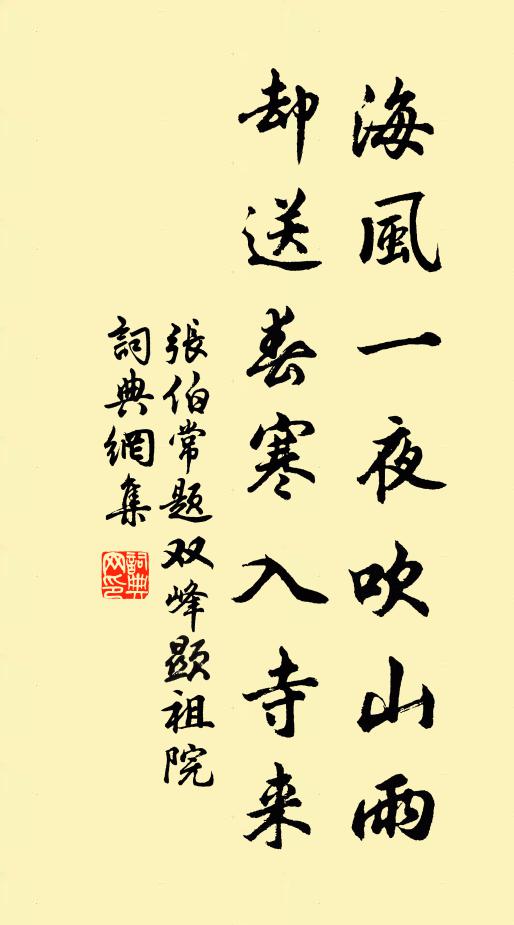 海風一夜吹山雨
却送春寒入寺来
張伯常题双峰顯祖院
詞典網集
詞典网印